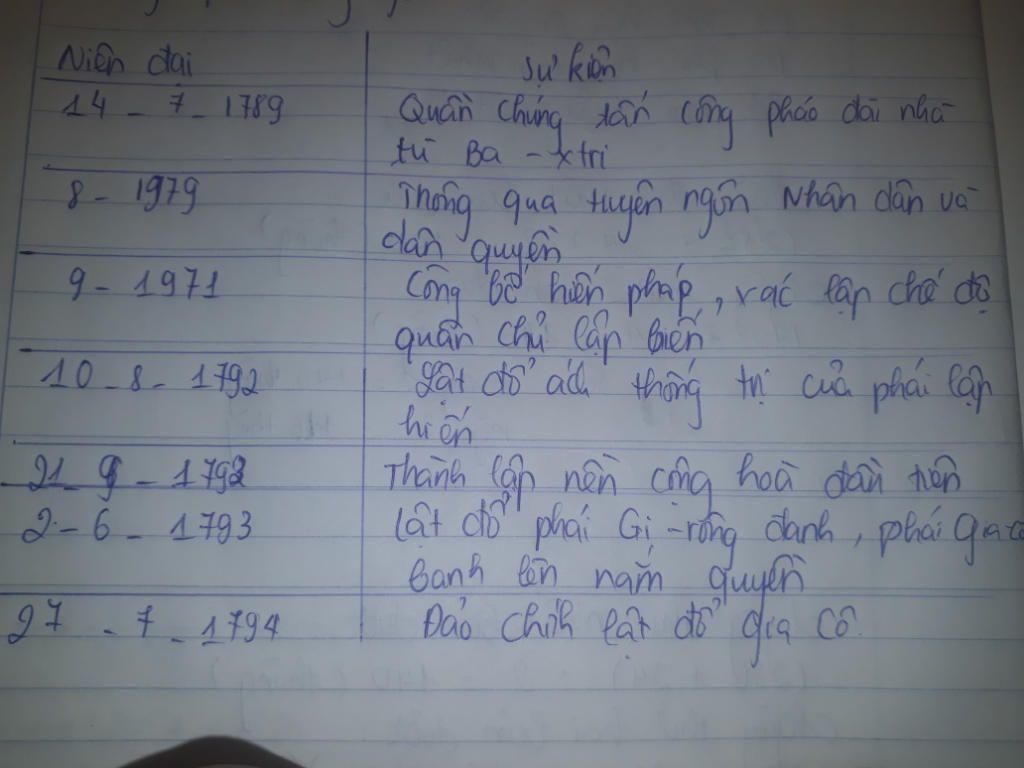 Niên đại sự kiện
14 - 7 - 1789 Quần chúng tấn công pháo đài nhà
tù Ba - xtri
8 - 1979 Thông qua tuyên ngôn Nhân dân và
dân quyền
9 - 1971 Công bố hiến pháp, xác lập chế độ
quân chủ lập hiến
10 - 8 - 1792 Lật đổ ách thống trị của phái lập
hiến
21 - 9 - 1792 Thành lập nền cộng hoà đầu tiên
2 - 6 - 1793 Lật đổ phái Gi - rông đanh, phái Gia cô
banh lên nắm quyền
27 - 7 - 1794 Đảo chính lật đổ gia cô